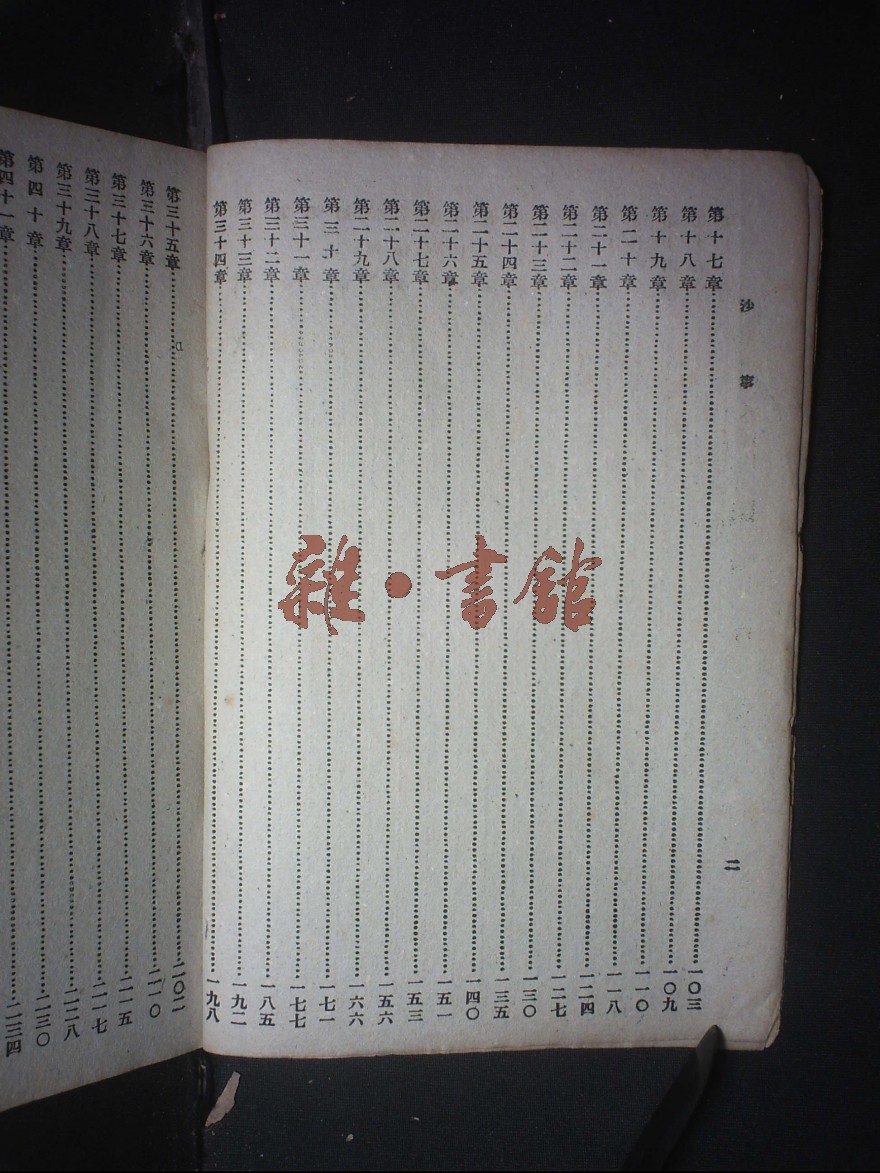 沙寧 二
第十七章……一〇三
第十八章……一〇九
第十九章……一一〇
第二十章……一一八
第二十一章……一二四
第二十二章……一二七
第二十三章……一三〇
第二十四章……一三五
第二十五章……一四〇
第二十六章……一五一
第二十七章……一五三
第二十八章……一五六
第二十九章……一六六
第三十章……一七一
第三十一章……一七七
第三十二章……一八五
第三十三章……一九二
第三十四章……一九八
第三十五章……二〇二
第三十六章……二一〇
第三十七章……二一五
第三十八章……二一七
第三十九章……二二八
第四十章……二三〇
第四十一章……二三四
雜·書館